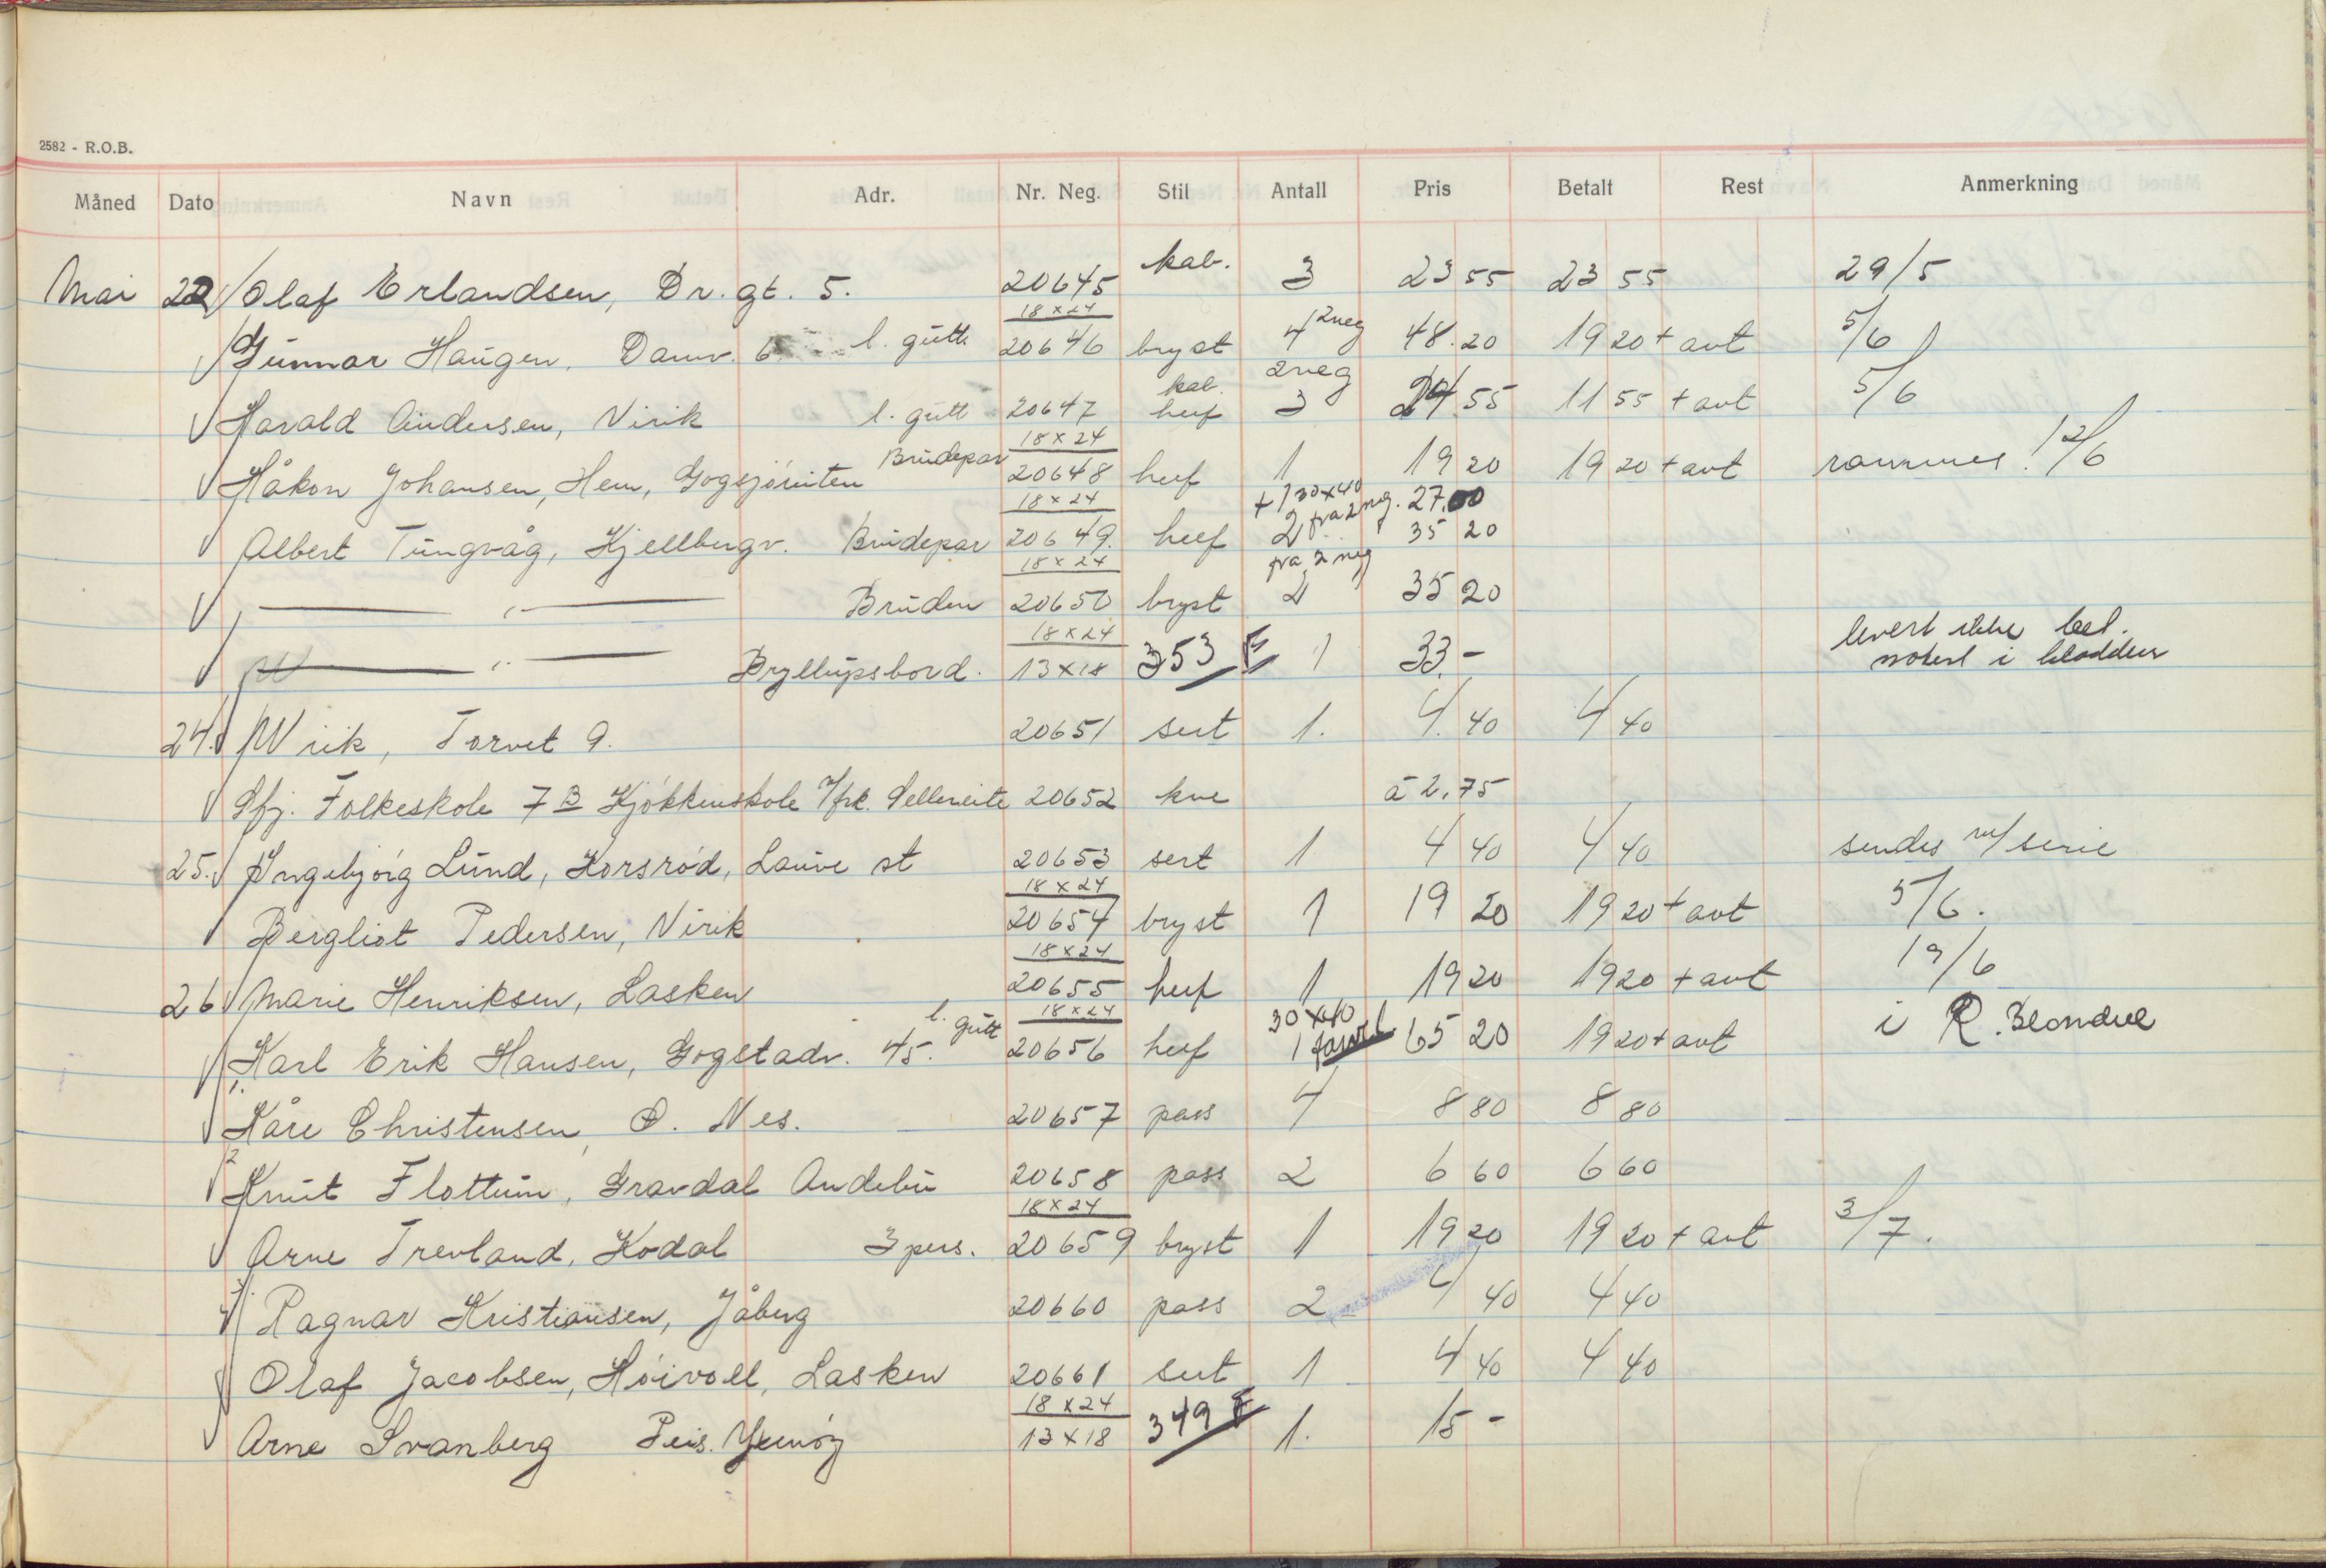 2582 - R.O.B.
Måned Dato Navn Adr. Nr. Neg. Stil Antall Pris Betalt Rest Anmerkning
Mai 22 Olaf Erlandsen, Dr. gt. 5. 20645 kab. 3 23 55 23 55 29/5
18 x 24
Gunnar Haugen, Damv. 6 l. gutt 20646 bryst 4 2 neg 48.20 19 20 + avt 5/6
2 neg
Harald Andersen, Virik l. gutt 20647 kab. heef 3 24 55 11 55 + avt 5/6
18 x 24
Håkon Johansen, Hem, Brudepar 20648 heef 1 19 20 19 20 + avt rammes! 12/6
18 x 24 + 1 30x40 27.00
Albert Tungvåg, Kjellbergv. Brudepar 20649. heef 2 fra 2 neg. 35 20
18 x 24 fra 2 neg
— " — Bruden 20650 bryst 2 35 20
18 x 24
— " — Bryllupsbord. 13 x 18 353 F 1 33.- levert ikke bet. notert i kladden
24. Wiik, Torvet 9. 20651 sert 1. 4.40 4 40
Sfj. Folkeskole 7 B Kjökkenskole v/frk. 20652 kve à 2.75
25. Ingebjörg Lund, Korsröd, Lauve st 20653 sert 1 4 40 4 40 sendes m/ serie
18 x 24
Bergliot Pedersen, Virik 20654 bryst 1 19 20 19 20 + avt 5/6.
18 x 24
26 Marie Henriksen, Lasken 20655 heef 1 19 20 19 20 + avt 19/6
18 x 24 30 x 40
Karl Erik Hansen, Gogstadv. 45. l. gutt 20656 heef 1 65 20 19 20 + avt i R. Blondell
1. Kåre Christensen, Ö. Nes. 20657 pass 4 8 80 8 80
2 Knut Flottum, Gravdal Andebu 20658 pass 2 6 60 6 60
18 x 24
Arne Trevland, Kodal 3 pers. 20659 bryst 1 19 20 19 20 + avt 3/7.
3. Ragnar Kristiansen, Jåberg 20660 pass 2 4 40 4 40
Olaf Jacobsen, Höivoll, Lasken 20661 sert 1 4 40 4 40
18 x 24
Arne Svanberg Peis. 13 x 18 349 F 1. 15 -